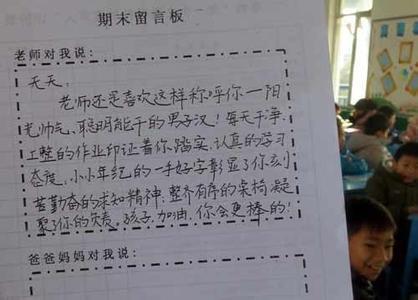 期末留言板
老师对我说：
天天：
老师还是喜欢这样称呼你—阳
光帅气、聪明能干的男子汉！每天干净、
工整的作业印证着你踏实、认真的学习
态度，小小年纪的一手好字彰显了你刻
苦勤奋的求知精神；整齐有序的桌椅凝
聚了你的负责，孩子，加油，你会更棒的！
爸爸妈妈对我说：